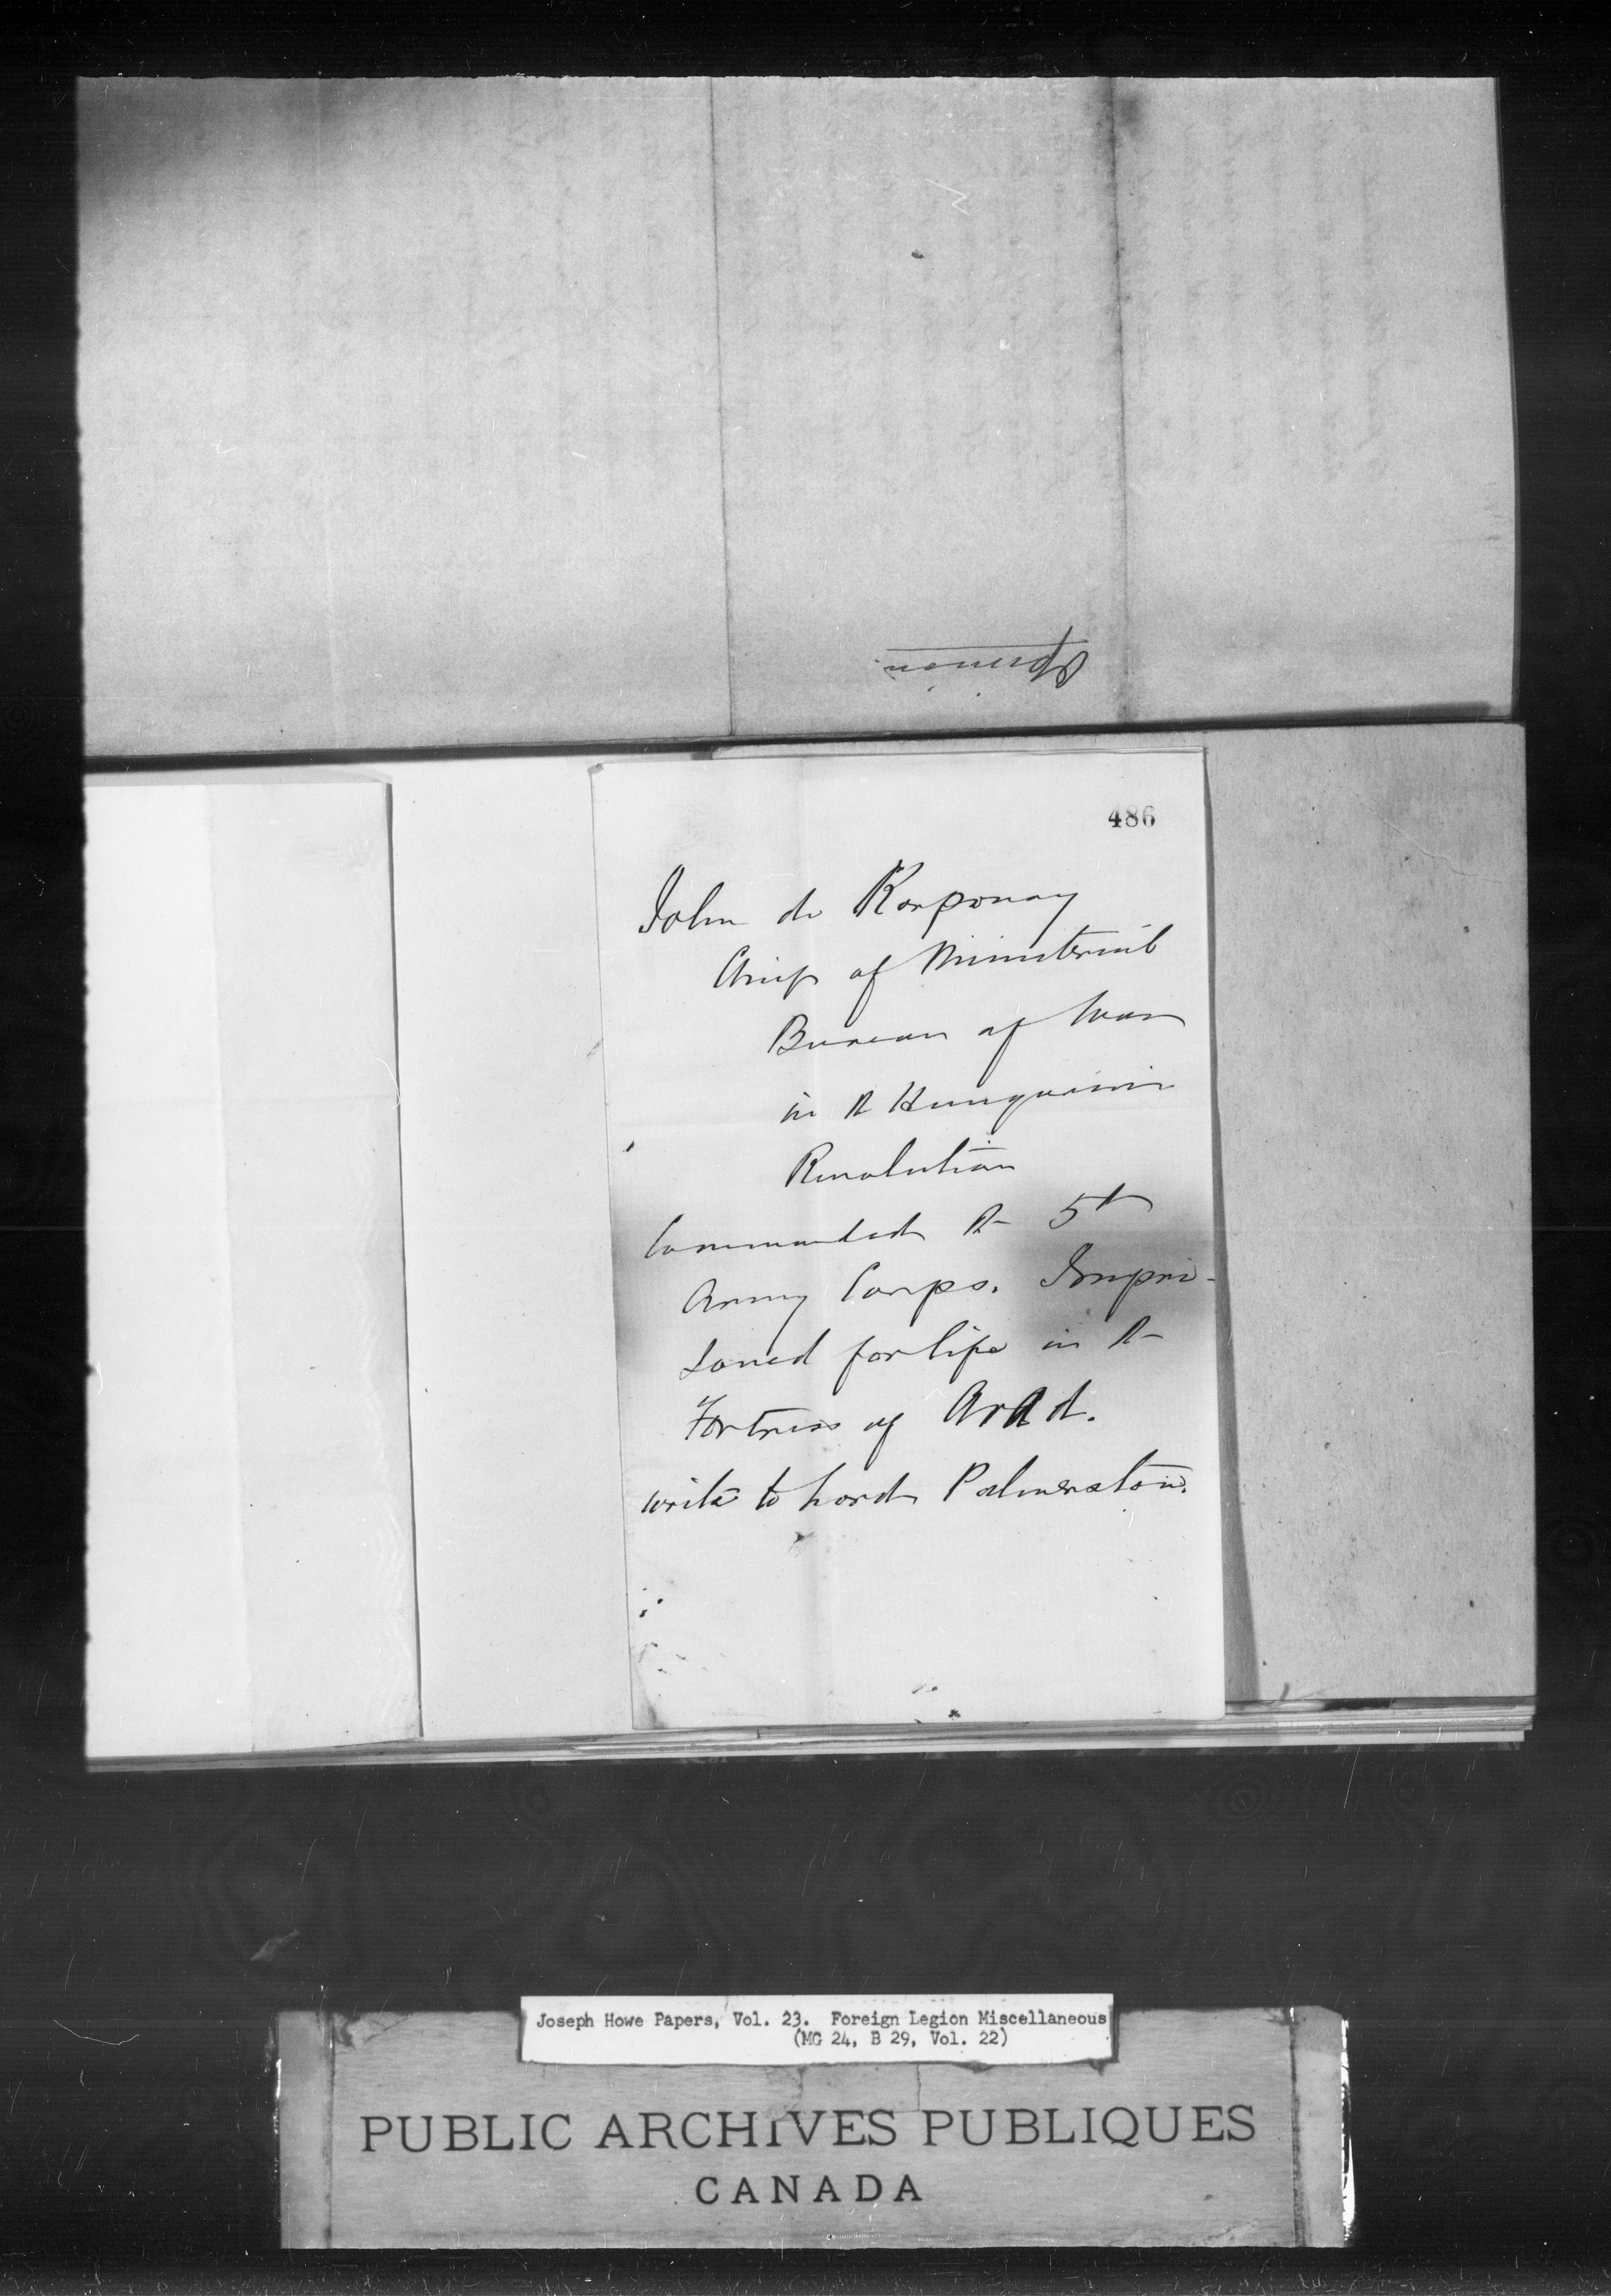 Opinion
486
John de Korponay
Chief of Ministerial
Bureau of War
in the Hungarian
Revolution
Commanded the 5th
Army Corps. Impri-
soned for life in the
Fortress of Arad.
write to Lord Palmerston.
Joseph Howe Papers, Vol. 23. Foreign Legion Miscellaneous
(MG 24, B 29, Vol. 22)
PUBLIC ARCHIVES PUBLIQUES
CANADA